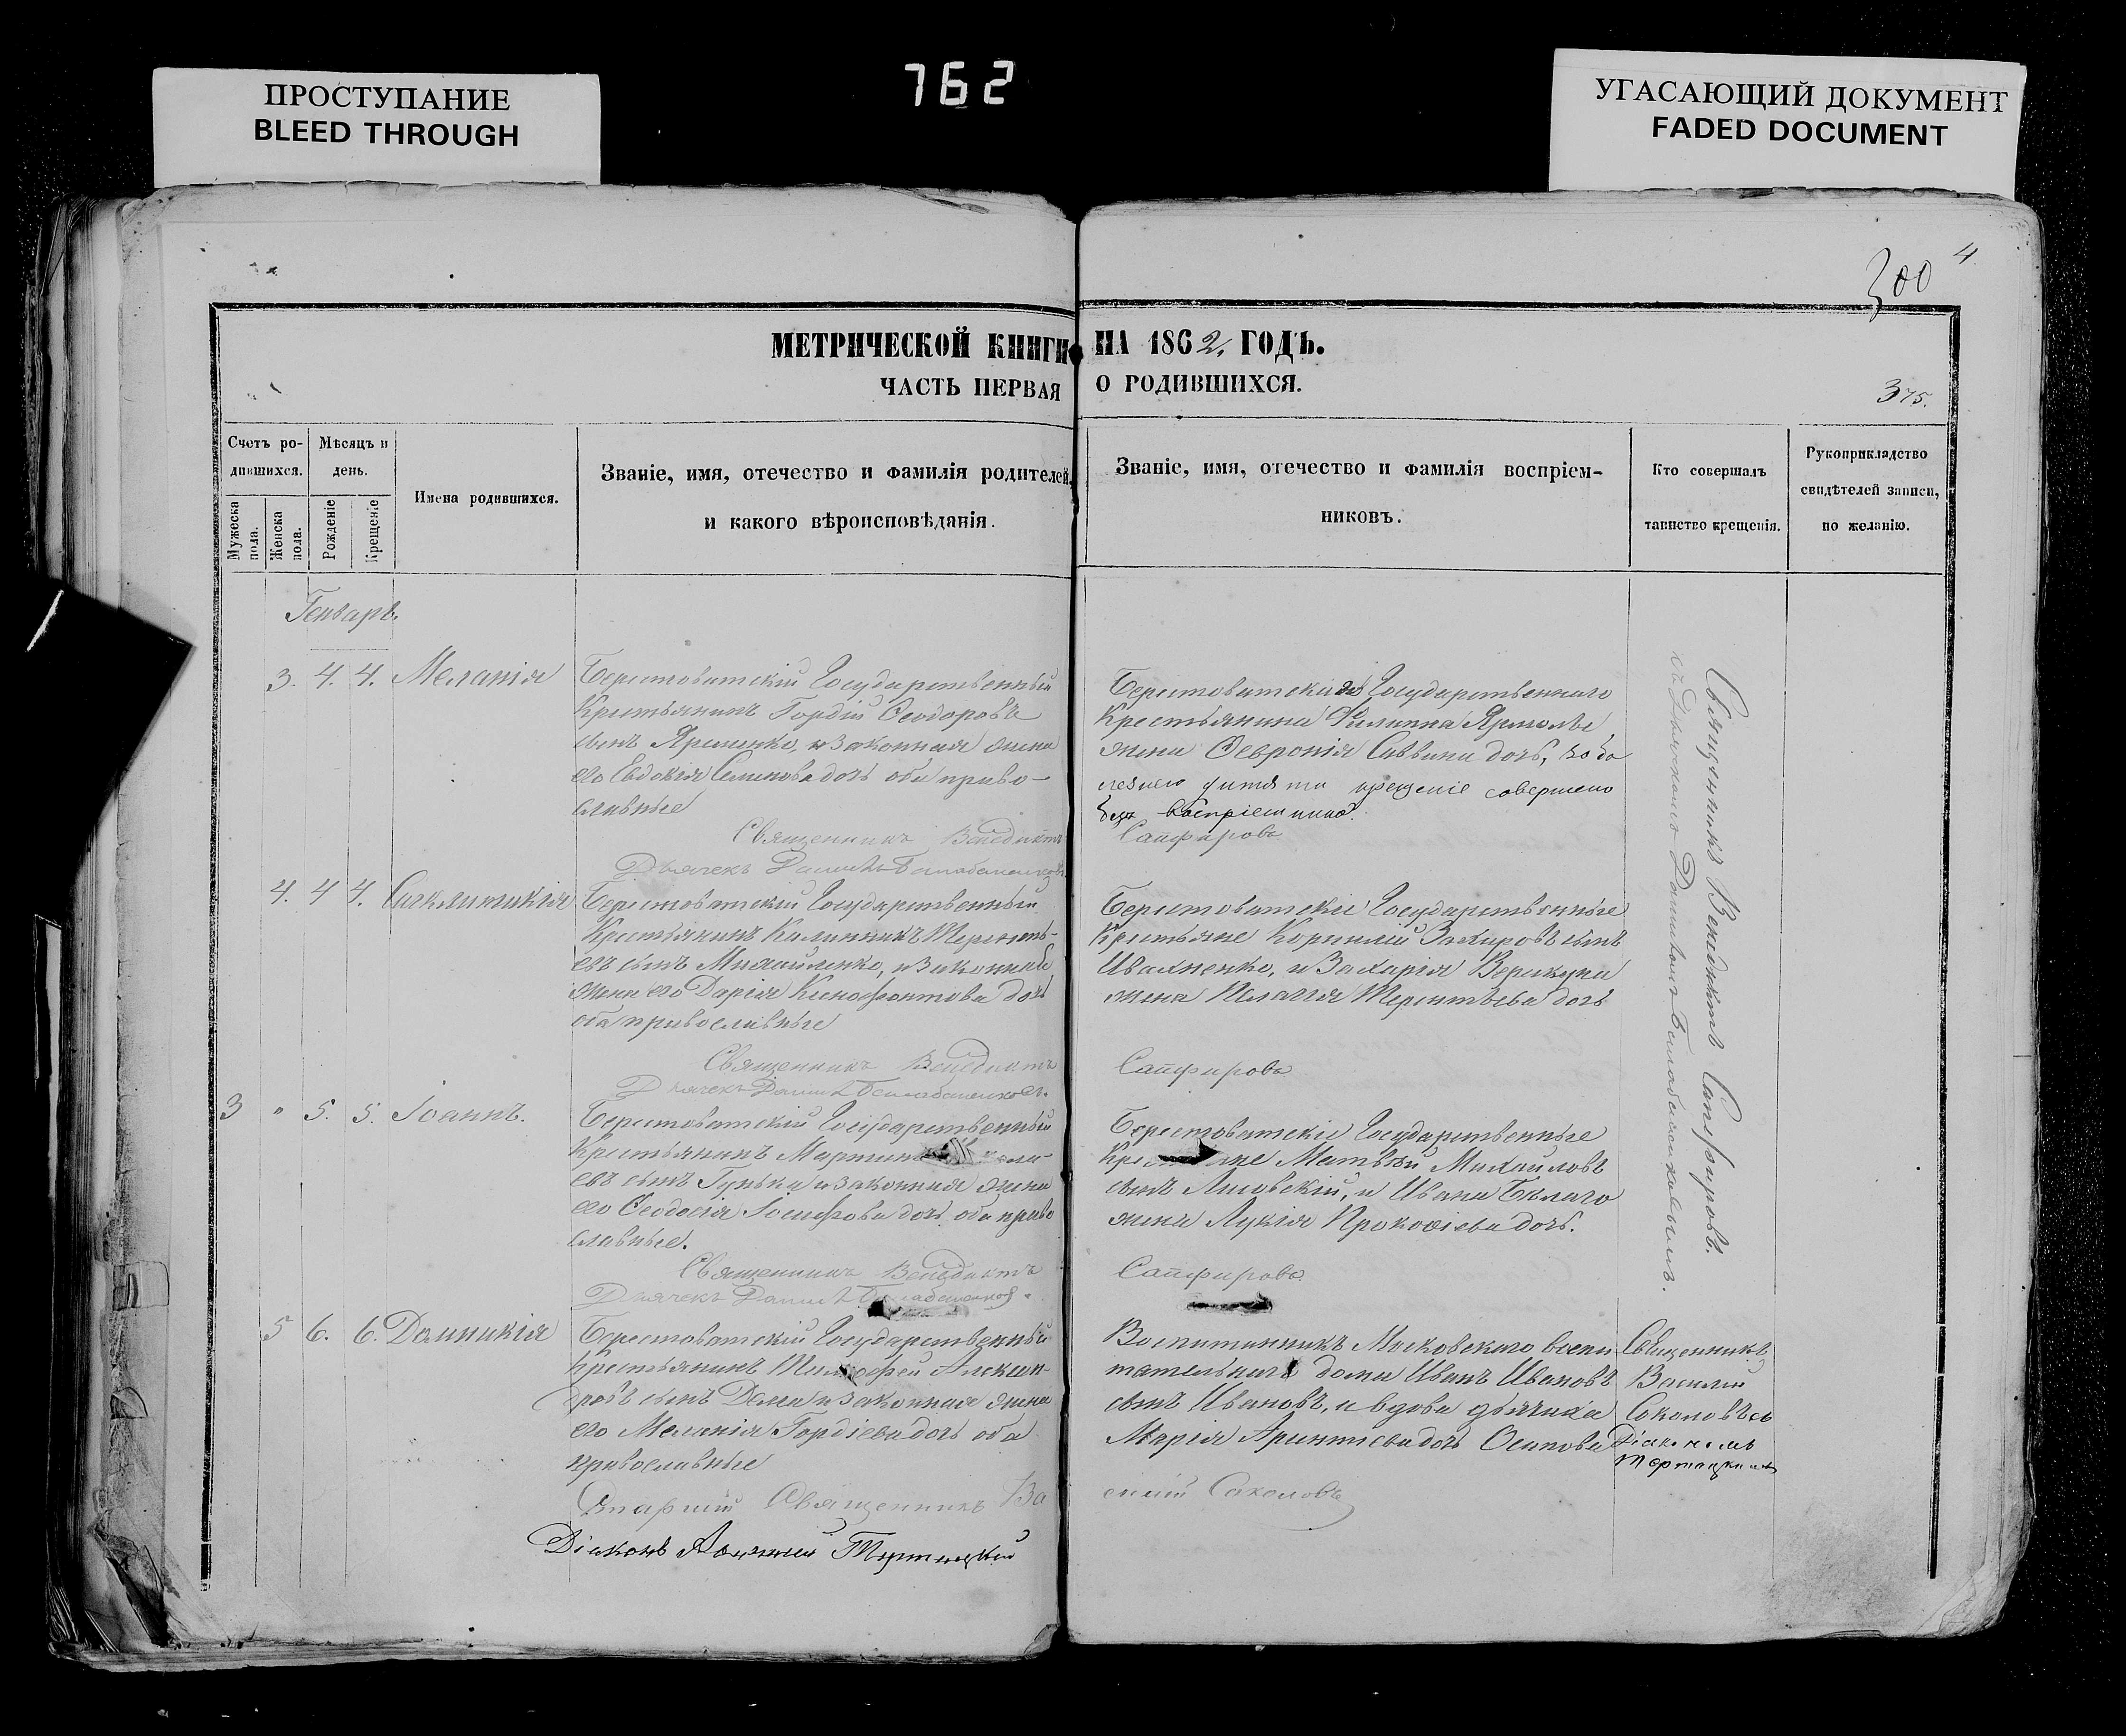 762
ПРОСТУПАНИЕ
BLEED THROUGH
УГАСАЮЩИЙ ДОКУМЕНТ
FADED DOCUMENT
300
4
МЕТРИЧЕСКОЙ КНИГИ НА 1862. ГОДЪ.
ЧАСТЬ ПЕРВАЯ О РОДИВШИХСЯ.
375.
Счетъ ро-
дившихся.
Мужеска пола.
Женска пола.
Мѣсяцъ и
день.
Рожденіе
Крещеніе
Имена родившихся.
Званіе, имя, отечество и фамилія родителей,
и какого вѣроисповѣданія.
Званіе, имя, отечество и фамилія воспріем-
никовъ.
Кто совершалъ
таинство крещенія.
Рукоприкладство
свидѣтелей записи,
по желанію.
Генварь.
3. 4. 4. Меланія
Берестоватскій Государственный
Крестьянинъ Гордій Ѳеодоровъ
сынъ Яременко, и законная жена
его Евдокія Семенова дочь оба право-
славные
Священникъ Венедиктъ
Дьячекъ Даніилъ
Государственнаго
Крестьянина Филиппа
жена Ѳевронія Саввина дочь, по бо
лезнею дитяти крещеніе совершено
безъ воспріемника.
Сапфировъ
4. 4 4. Синклитикія
Берестоватскій Государственный
Крестьянинъ Калинникъ Терентъ-
евъ сынъ Михайленко, и законная
жена его Дарія Ксенофонтова дочь
оба православные
Священникъ Венедиктъ
Дьячекъ Даніилъ
Берестоватскіе Государственные
Крестьяне Корнилій Захаровъ сынъ
Ивахненко, и Захарія
жена Пелагія Терентьева дочь
Сапфировъ
3 " 5. 5. Іоаннъ.
Берестоватскій Государственный
Крестьянинъ
евъ сынъ Гунька и законная жена
его Ѳеодосія Іосифова дочь оба право
славные.
Священникъ Венедиктъ
Дьячекъ Даніилъ
Берестоватскіе Государственные
Матвѣй Михайловъ
сынъ Лисовскій, и Ивана Бѣлаго
жена Лукія Прокофіева дочь.
Сапфировъ
Священникъ Венедиктъ Сапфировъ.
съ Дьячкомъ Данииломъ
5 6. 6. Домникія
Берестоватскій Государственный
Крестьянинъ Тимофей Алексан-
дровъ сынъ и законная жена
его Меланія Гордіева дочь оба
православные
Священникъ Ва
силій Соколовъ
Діаконъ
Воспитанникъ Московскаго воспи
тательнаго дома Иванъ Ивановъ
сынъ Ивановъ, и вдова дьячиха
Марія дочь Осипова
Священникъ
Василій
Соколовъ съ
Діакономъ